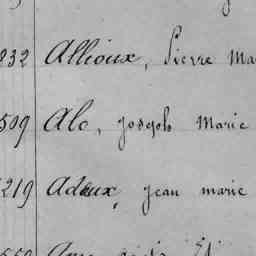 832 Allioux, Pierre Ma
509 Alo, joseph Marie
219 Adoux, jean marie